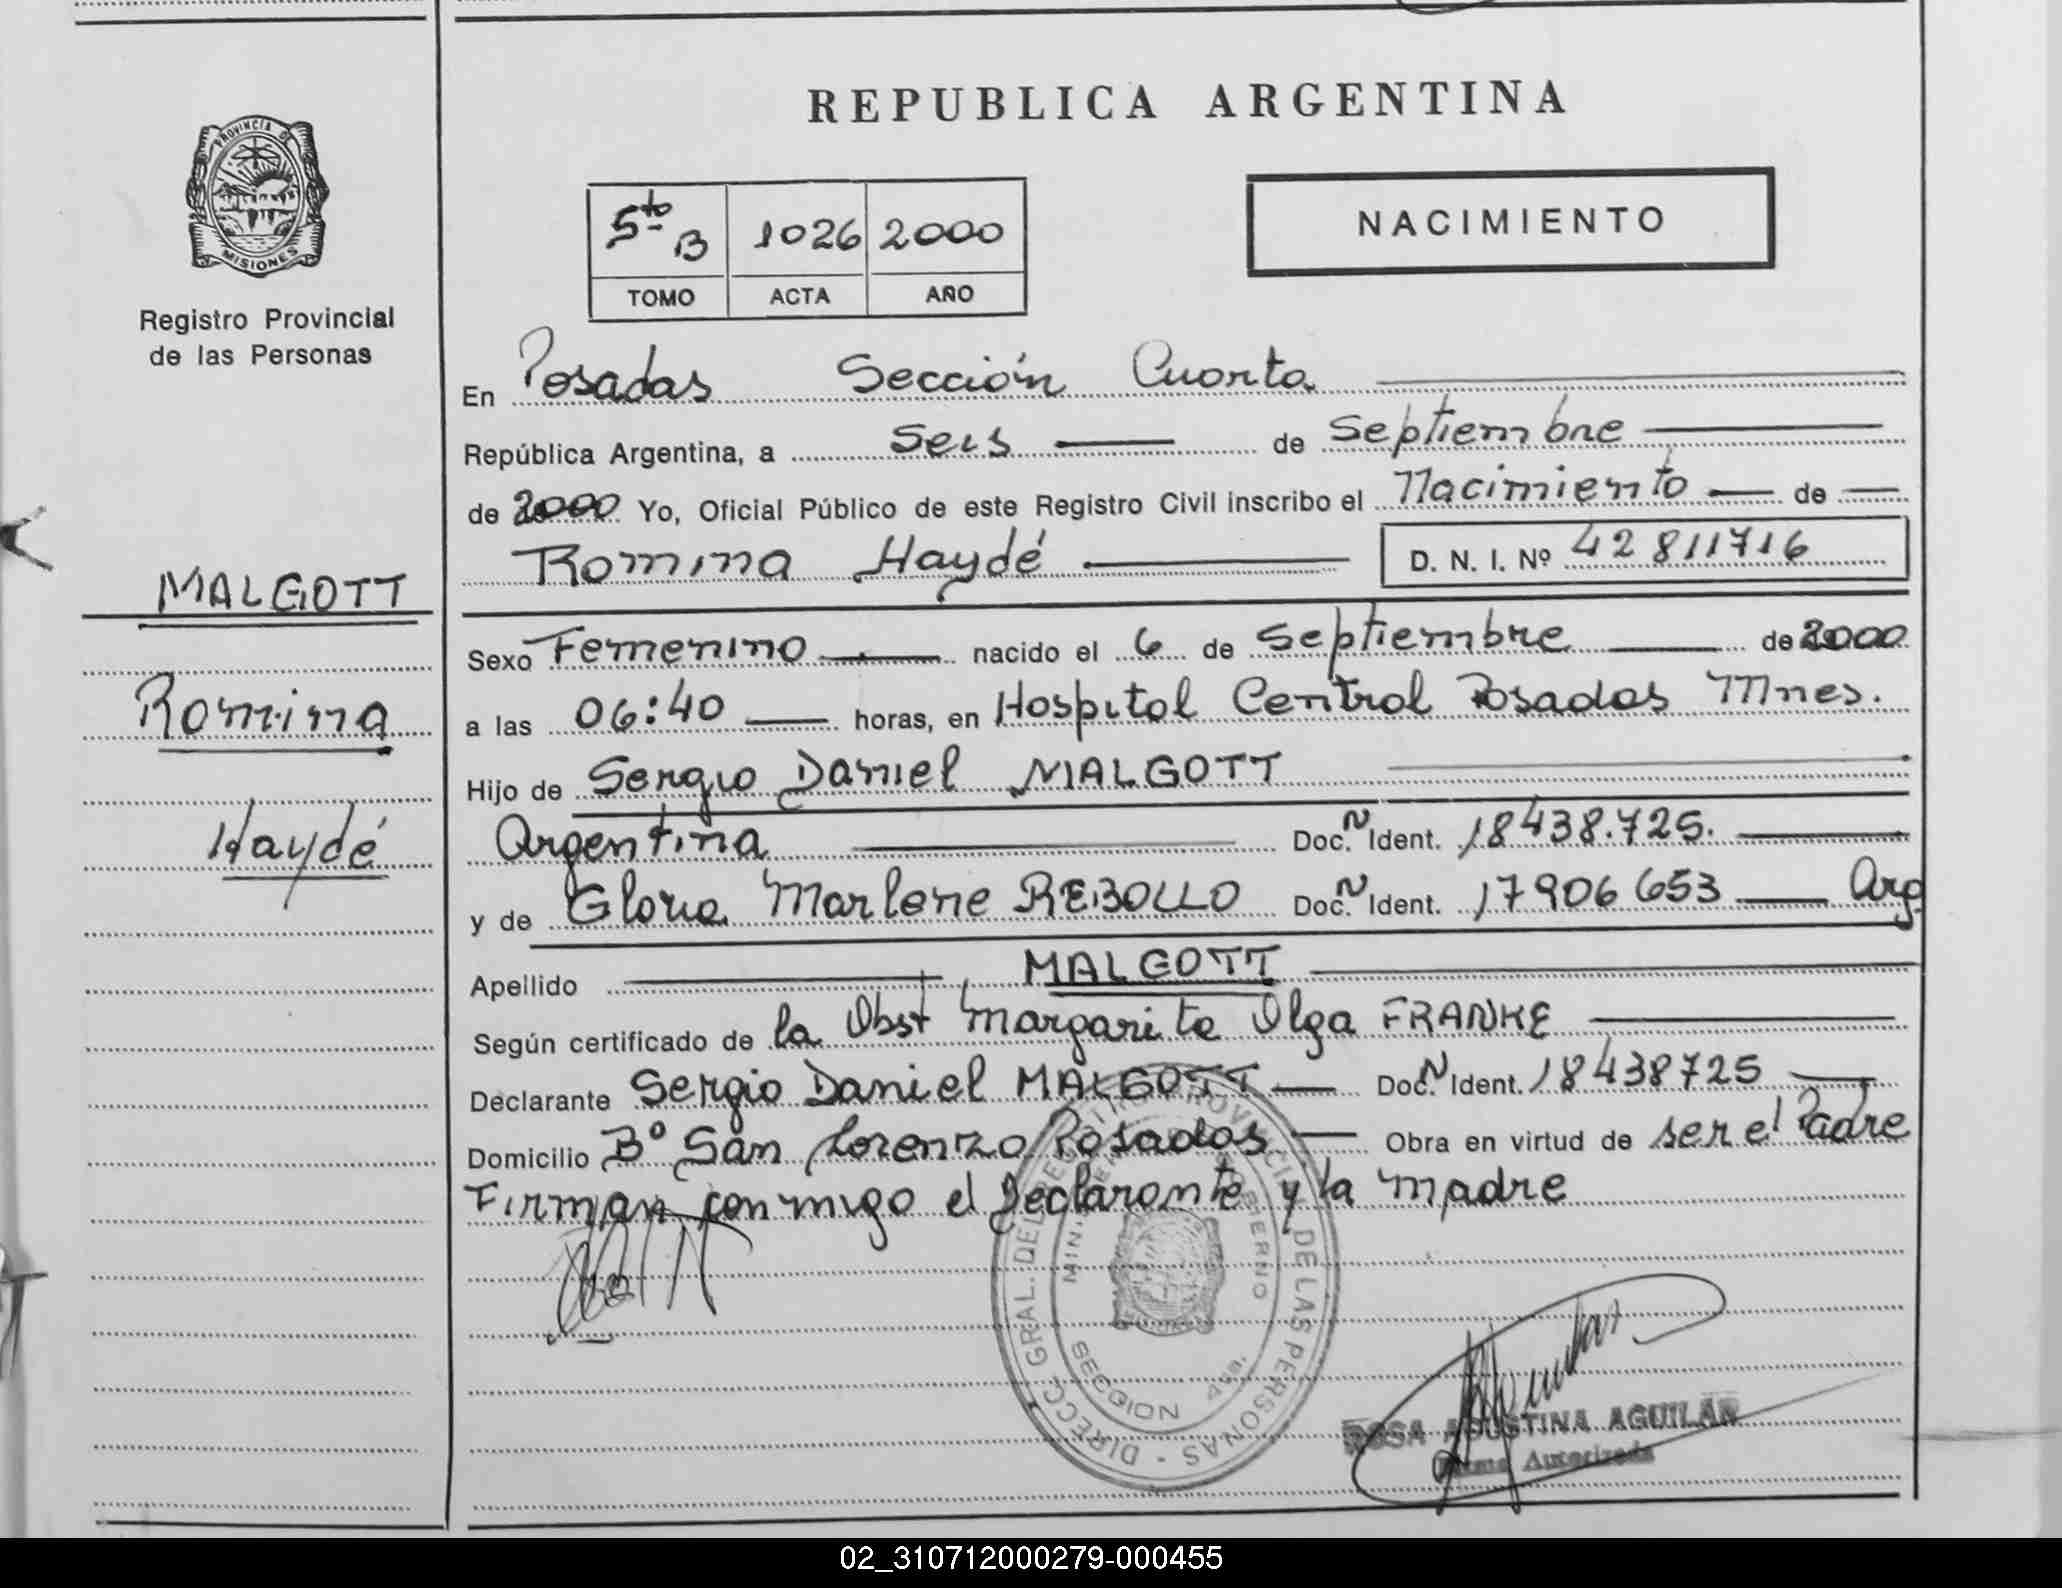 REPUBLICA ARGENTINA
PROVINCIA DE
MISIONES
Registro Provincial
de las Personas
5to B 1026 2000
TOMO ACTA AÑO
NACIMIENTO
MALGOTT
Romina
Haydé
En Posadas Sección Cuarta
República Argentina, a Seis de Septiembre
de 2000 Yo, Oficial Público de este Registro Civil inscribo el Nacimiento de
Romina Haydé D. N. I. Nº 42811716
Sexo Femenino nacido el 6 de Septiembre de 2000
a las 06:40 horas, en Hospital Central Posadas Mnes.
Hijo de Sergio Daniel MALGOTT
Argentina Doc. N Ident. 18438.725.
y de Gloria Marlene REBOLLO Doc. N Ident. 17906653 Arg
Apellido MALGOTT
Según certificado de la Obst Margarita Olga FRANKE
Declarante Sergio Daniel MALGOTT Doc. N Ident. 18438725
Domicilio Bº San Lorenzo Posadas Obra en virtud de ser el Padre
Firman conmigo el Declarante y la madre
DIRECC. GRAL. DEL REGISTRO PROVINCIAL DE LAS PERSONAS
SECCION
ROSA AGUSTINA AGUILAR
Firma Autorizada
02_310712000279-000455